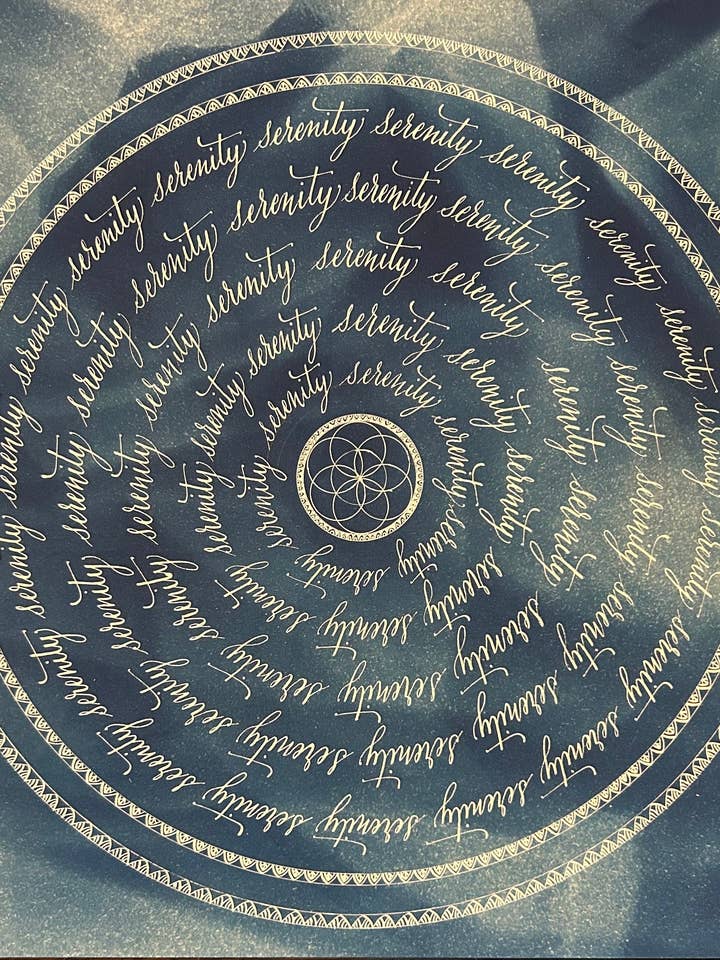 serenity serenity serenity serenity serenity serenity serenity serenity serenity serenity serenity serenity serenity serenity serenity serenity serenity serenity serenity
serenity serenity serenity serenity serenity serenity serenity serenity serenity serenity serenity serenity serenity serenity serenity
serenity serenity serenity serenity serenity serenity serenity serenity serenity serenity serenity
serenity serenity serenity serenity serenity serenity serenity serenity serenity
serenity serenity serenity serenity serenity serenity